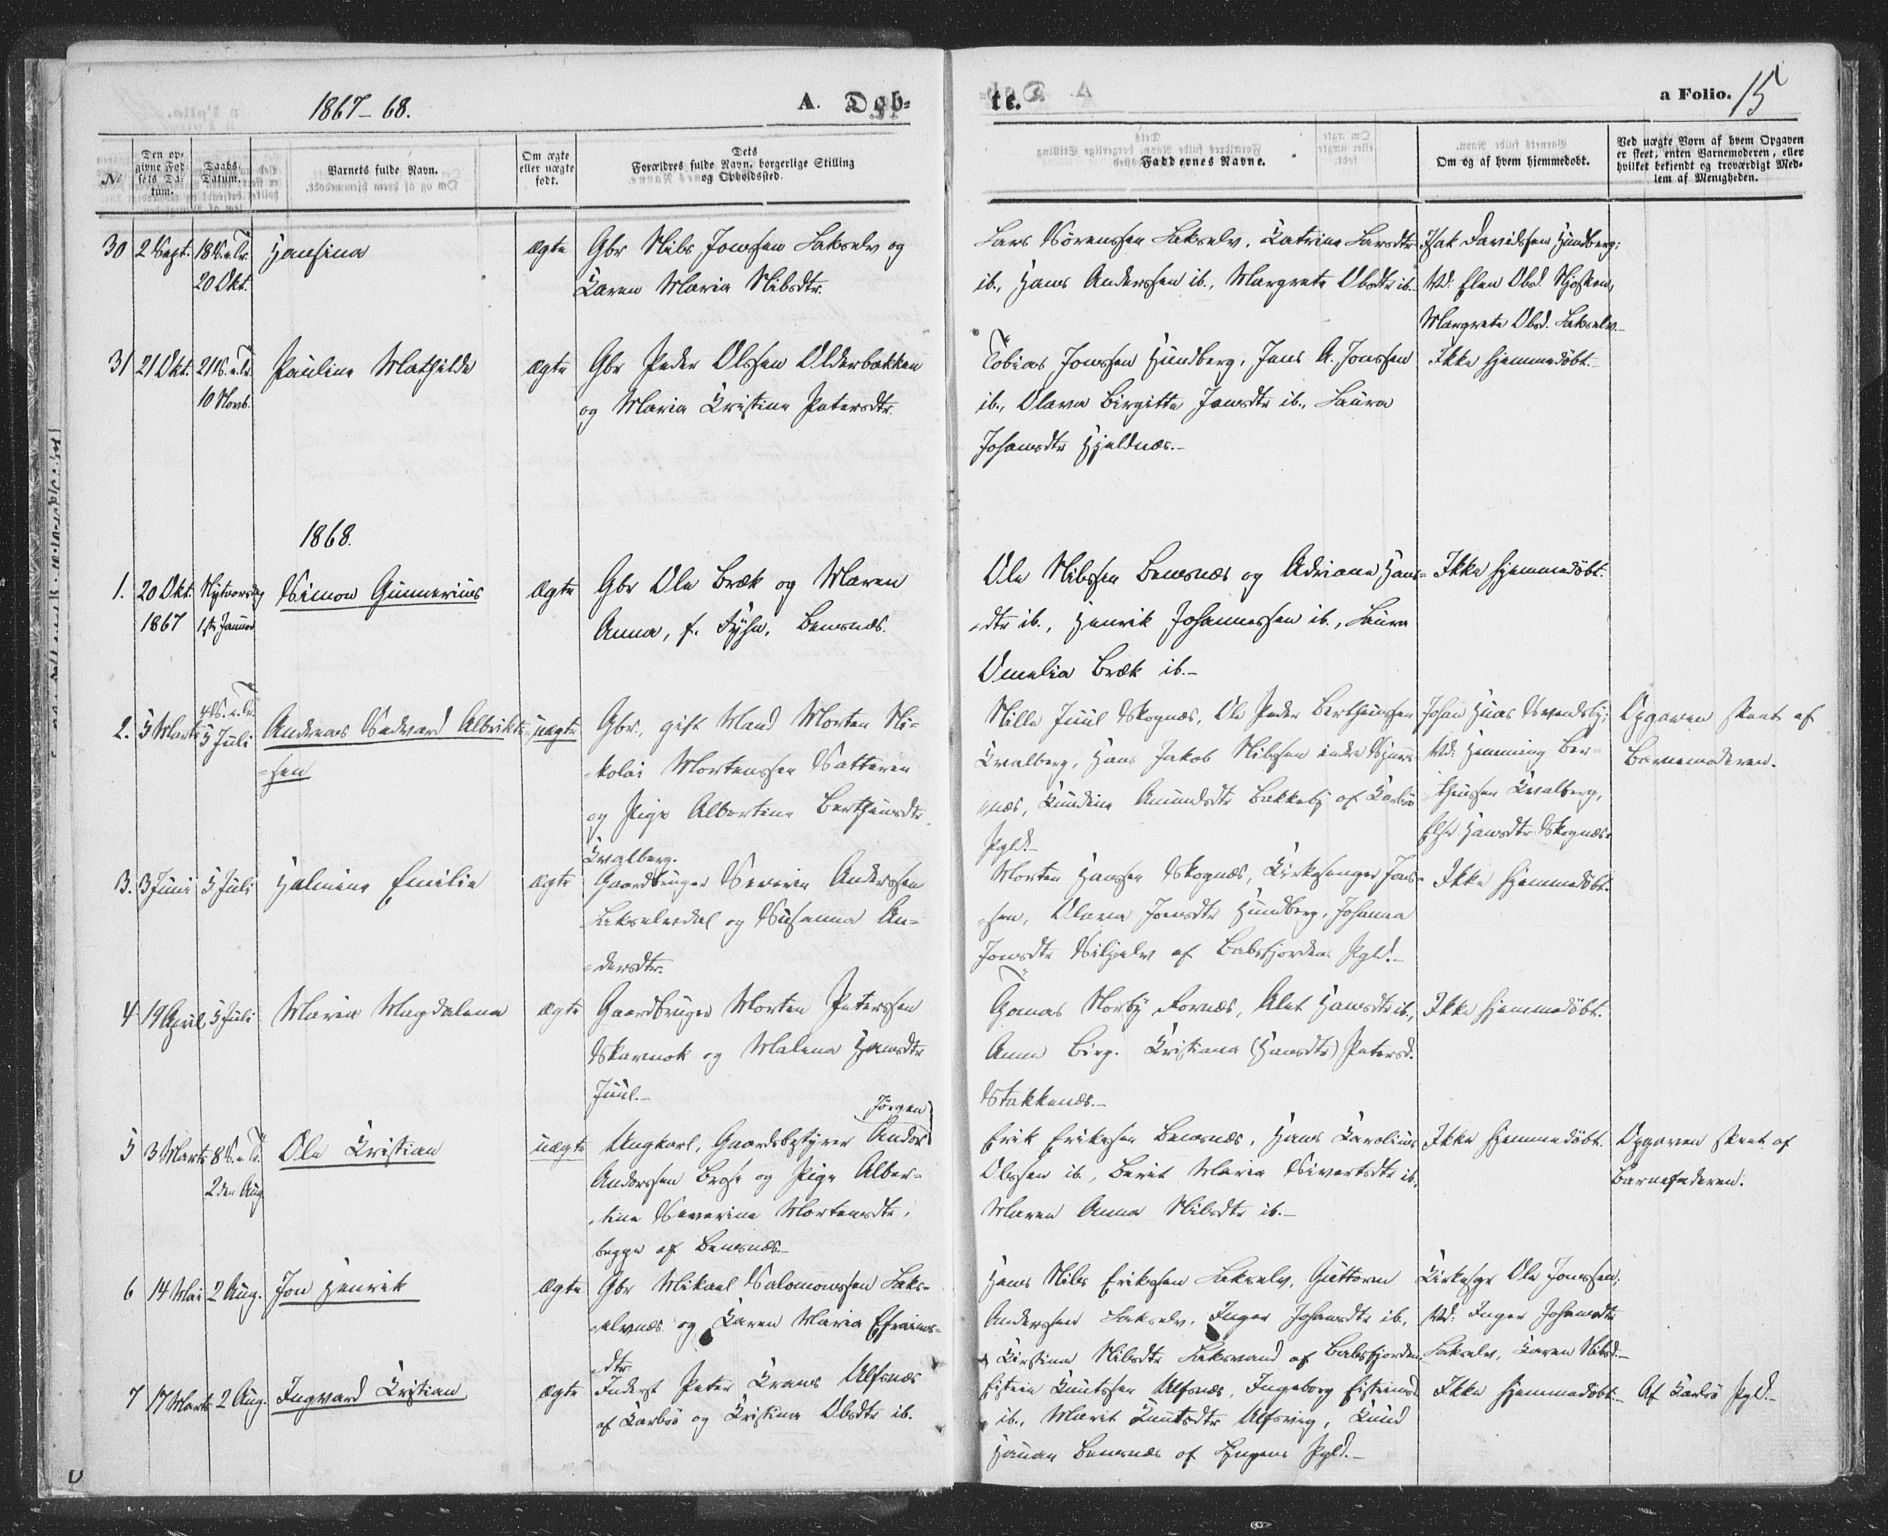 1867–68. A. Døb-
te. a Folio. 15
№
Den op-
givne Fød-
sels Da-
tum.
Daabs-
Datum.
Barnets fulde Navn.
Om ægte
eller uægte
født.
Dets
Forældres fulde Navn, borgerlige Stilling
og Opholdssted.
Faddernes Navne.
Om og af hvem hjemmedøbt.
Ved uægte Børn af hvem Opgaven
er skeet, enten Barnemoderen, eller
hvilket bekjendt og troværdigt Med-
lem af Menigheden.
30 2 Sept. 18 S. e. Tr.
20 Okt.
Hansina
ægte
Gbr Nils Jonssen Lakselv og
Karen Maria Nilsdtr.
Lars Sörenssen Lakselv, Katrina Larsdtr
ib., Hans Anderssen ib., Margrete Olsdtr ib.
Isak Davidssen Hundberg;
Vd. Elen Olsd. Njosken,
Margrete Olsd. Lakselv.
31 21 Okt. 21 S. e. Tr.
10 Novb.
Pauline Mathilde
ægte
Gbr Peder Olssen Olderbakken
og Maria Kristine Petersdtr.
Tobias Jonssen Hundberg, Jens A. Jonssen
ib., Olava Birgitte Jonsdtr ib., Laura
Johansdtr Hjeldnæs.
Ikke hjemmedøbt.
1868.
1. 20 Okt.
1867
Nytaarsdag
1ste Januar
Simon Gunnerius
Ægte
Gbr Ole Bræk og Maren
Anna, f. Fyhn, Bensnæs.
Ole Nilssen Bensnæs og Adriana Hans-
-dtr ib., Henrik Johannessen ib., Laura
Omelia Bræk ib.
Ikke hjemmedøbt.
2. 5 Marts
4 S. e. Tr.
5 Juli
Andreas Sedvard Albrikt-
-sen
uægte
Gbr., gift Mand Morten Ni-
-kolai Mortenssen Satteren
og Pige Albertine Bertheusdtr
Kvalberg.
Nille Juul Skognæs, Ole Peder Bertheussen
Kvalberg, Hans Jakob Nilssen indre
-næs, Kundine Amundsdtr Bakkeby af Karlsö
Pgld.
Johan Huas Svendsby;
Vd: Henning Ber-
-theussen Kvalberg,
Else Hansdtr Skognæs.
Opgaven skeet af
Barnemoderen.
3. 3 Juni 5 Juli
Halmine Emilie
ægte
Gaardbruger Severin Anderssen
Lakselvdal og Susanna An-
-dersdtr.
Morten Hanssen Skognæs, Kirkesanger Jons-
-sen, Olava Jonsdtr Hundberg, Johanna
Jonsdtr Siljelv af Balsfjordens Pgld.
Ikke hjemmedøbt.
4 19 April 5 Juli
Maria Magdalena
ægte
Gaardbruger Morten Peterssen
Skavnok og Malena Hansdtr
Juul.
Tomas Norby Fornæs, Alet Hansdtr ib.,
Anna Birg. Kristiana (Hansdtr) Petersd.
Stakkenæs.
Ikke hjemmedøbt.
5 3 Marts 8 S. e. Tr.
2den Aug.
Ole Kristian
uægte
Ungkarl, Gaardbestyrer Jörgen Andor
Andorssen Berg og Pige Alber-
-tine Severine Mortensdtr,
begge af Bensnæs.
Erik Erikssen Bensnæs, Hans Karolius
Olssen ib., Berit Maria Sivertsdtr ib.,
Maren Anna Nilsdtr ib.
Ikke hjemmedøbt.
Opgaven skeet af
Barnefaderen.
6 14 Mai 2 Aug.
Jon Henrik
Ægte
Gbr Mikael Salomonssen Laks-
-elvnæs og Karen Maria Efraims-
-dtr
Hans Nils Erikssen Lakselv, Guttorm
Anderssen Lakselv, Inger Johansdtr ib.,
Kirstina Nilsdtr Laksvand af Balsfjorden
Kirkesgr Ole Jonssen;
Vd: Inger Johansdtr
Lakselv, Karen Nilsd.
7 17 Marts 2 Aug.
Ingvard Kristian
ægte
Inderst Peter Krans Ulfsnæs
af Karlsö og Kristina Olsdtr ib.
Eistein Knutssen Ulfsnæs, Ingeborg Eisteinsd
ib., Marit Knutsdtr Ulfsvig, Knud
Hanan Bensnæs af Lyngens Pgld.
Ikke hjemmedøbt.
Af Karlsö Pgld.